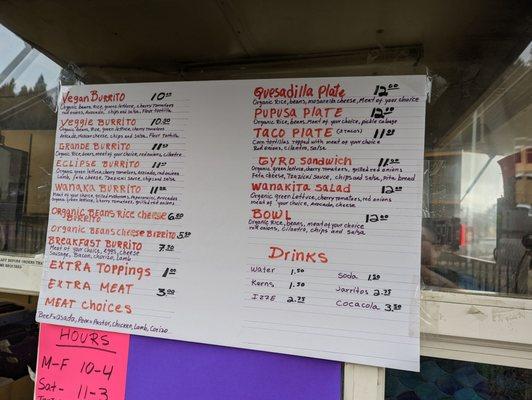 Vegan Burrito 10.00
Organic Beans, Rice, green lettuce, cherry tomatoes
red onions, Avocado, chips and salsa, Flour tortilla
Veggie Burrito 10.00
Organic Beans, Rice, green lettuce, cherry tomatoes
Avocado, cheese, chips and salsa, Flour Tortilla
Grande Burrito 11.00
Organic Rice, Beans, meat of your choice, red onions, cilantro
Eclipse Burrito 11.00
Organic green lettuce, cherry tomatoes, avocado, red onions
Lamb, feta cheese, Tzaziki sauce, chips and salsa
Wanaka Burrito 11.00
Meat of your choice, grilled mushrooms, Peperoncini, Avocados
Organic green Lettuce, cherry tomatoes, grilled red onions
Organic Beans Rice cheese Burrito 6.00
Organic Beans cheese Burrito 5.50
Breakfast Burrito 7.50
Meat of your choice, eggs, cheese
Sausage, Bacon, chorizo, Lamb
Extra Toppings 1.00
Extra Meat 3.00
Meat choices
Beef=Asada, Pork=Pastor, chicken, Lamb, Corizo
Quesadilla Plate 12.00
Organic Rice, beans, mozarella cheese, Meat of your choice
Pupusa Plate 12.00
Organic Rice, beans, Meat of your choice, pickle cabbage
Taco Plate (3 tacos) 11.00
Corn tortillas topped with meat of your choice
Red onions, cilantro, salsa
Gyro Sandwich 11.50
Organic green lettuce, cherry tomatoes, grilled red onions
Feta cheese, Tzaziki sauce, chips and salsa, Pita bread
Wanakita Salad 12.00
Organic green Lettuce, cherry tomatoes, red onions
meat of your choice, Avocado, cheese
Bowl 12.00
Organic Rice, beans, meat of your choice
red onions, cilantro, chips and salsa
Drinks
Water 1.50
Kerns 1.50
IZZE 2.75
Soda 1.50
Jarritos 2.75
Cocacola 3.50
Hours
M-F 10-4
Sat- 11-3